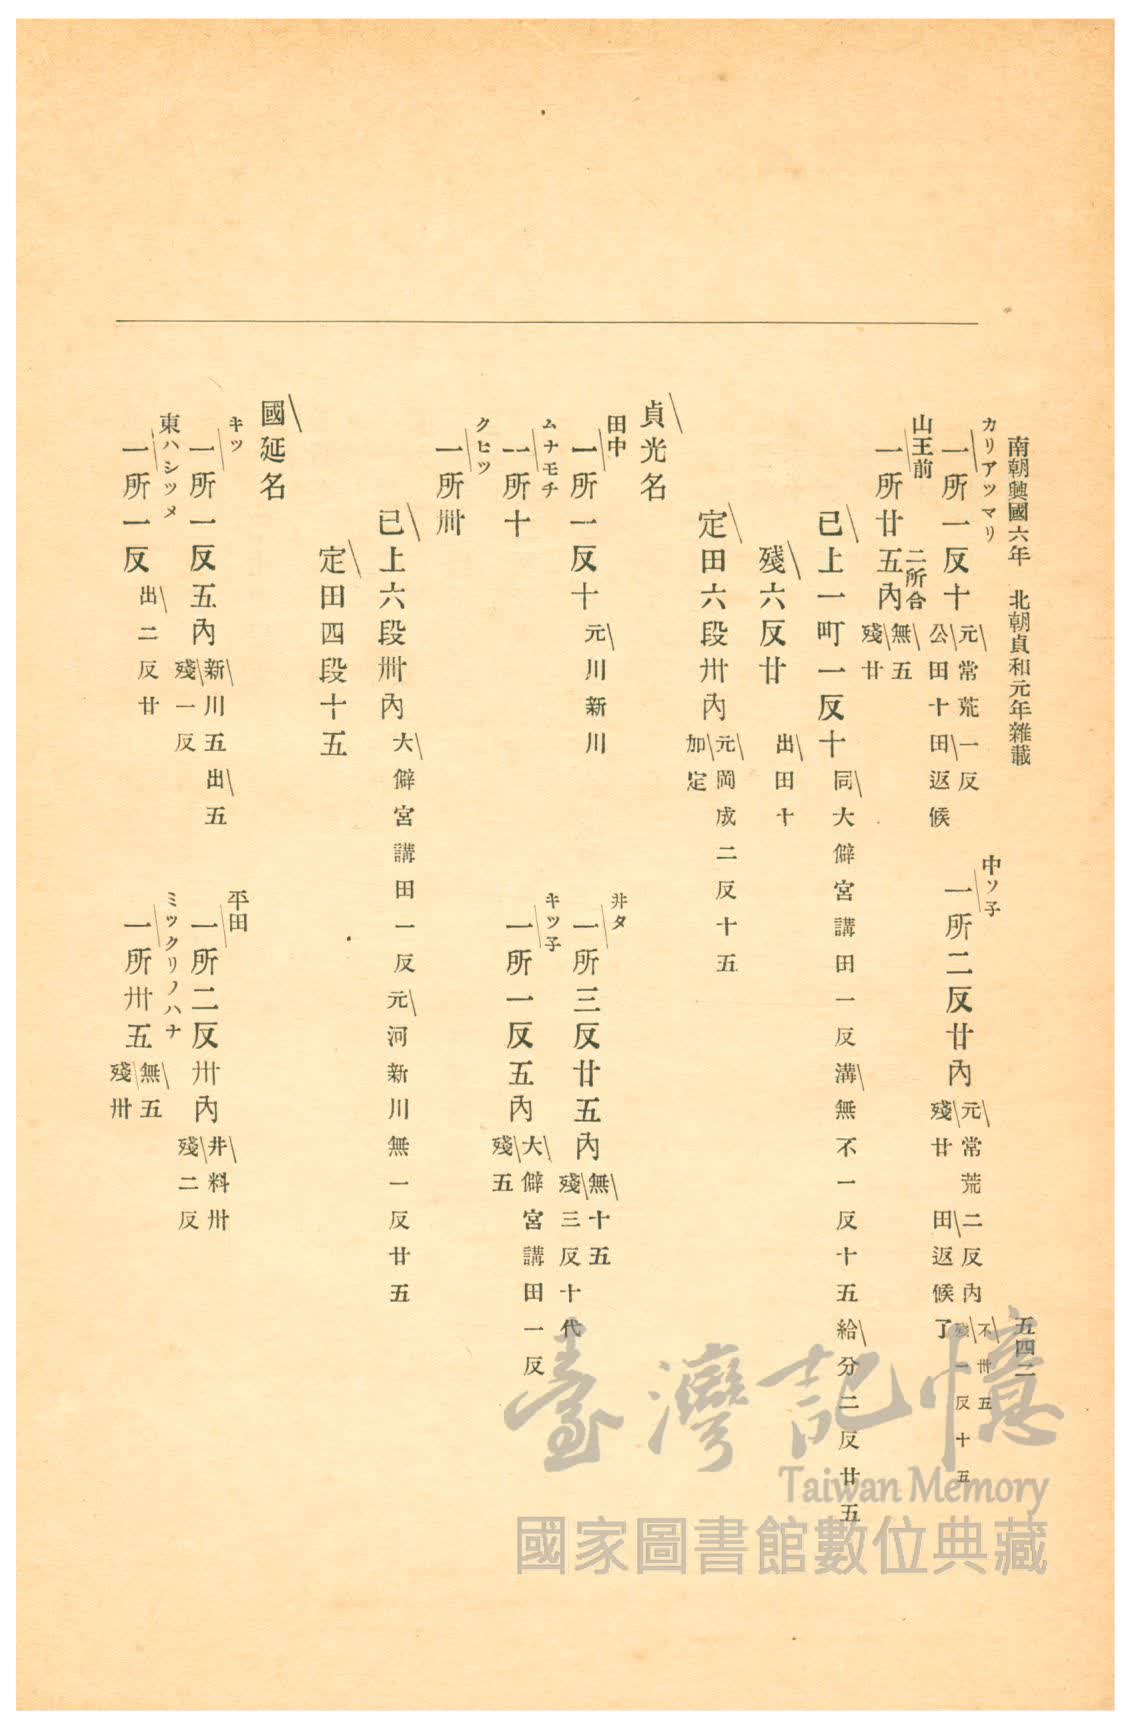 南朝興國六年 北朝貞和元年雜載
五四二
カリアツマリ
一所一反十
元常荒一反
公田十田返候
中ソ子
一所二反廿內
元常荒二反內
不卅五
殘一反十五
殘廿 田返候了
山王前
一所廿五內
二所合
無五
殘廿
已上一町一反十
同大僻宮講田一反溝無不一反十五給分二反廿五
殘六反廿
出田十
定田六段卅內
元岡成二反十五
加定
貞光名
田中
一所一反十
元川新川
井タ
一所三反廿五內
無十五
殘三反十代
ムナモチ
一所十
キツ子
一所一反五內
大僻宮講田一反
殘五
クヒツ
一所卌
已上六段卌內
大僻宮講田一反元河新川無一反廿五
定田四段十五
國延名
キツ
一所一反五內
新川五出五
殘一反
平田
一所二反卅內
井料卅
殘二反
東ハシツメ
一所一反
出二反廿
ミツクリノハナ
一所卅五
無五
殘卅
臺灣記憶
Taiwan Memory
國家圖書館數位典藏